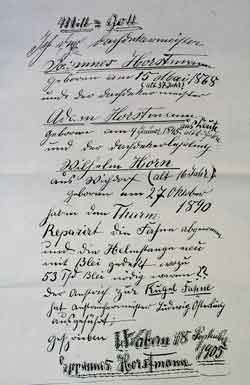 Mitt = Gott
Ich der Dachdeckermeister
Johannes Horstmann
Geboren am 15 Mai 1868
(alt 37 Jahr)
und der Dachdeckermeister
Adam Horstmann aus
geboren am 4 Januar 1845
und der Dachdeckerlehrling
Wilhelm Horn
aus Wichdorf (alt 16 Jahr)
Geboren am 27. Oktober
1890
haben den Thurm
Reparirt die Fahne abgenommen
und die Helmstange neu
mit Blei gedeckt wozu
53 Pfd Blei nödig waren
der Anstrich zur Kugel Fahne
hat Anstreichermeister Ludwig
ausgeführt.
Geschrieben Wabern 18 September
1905
Johannes Horstmann